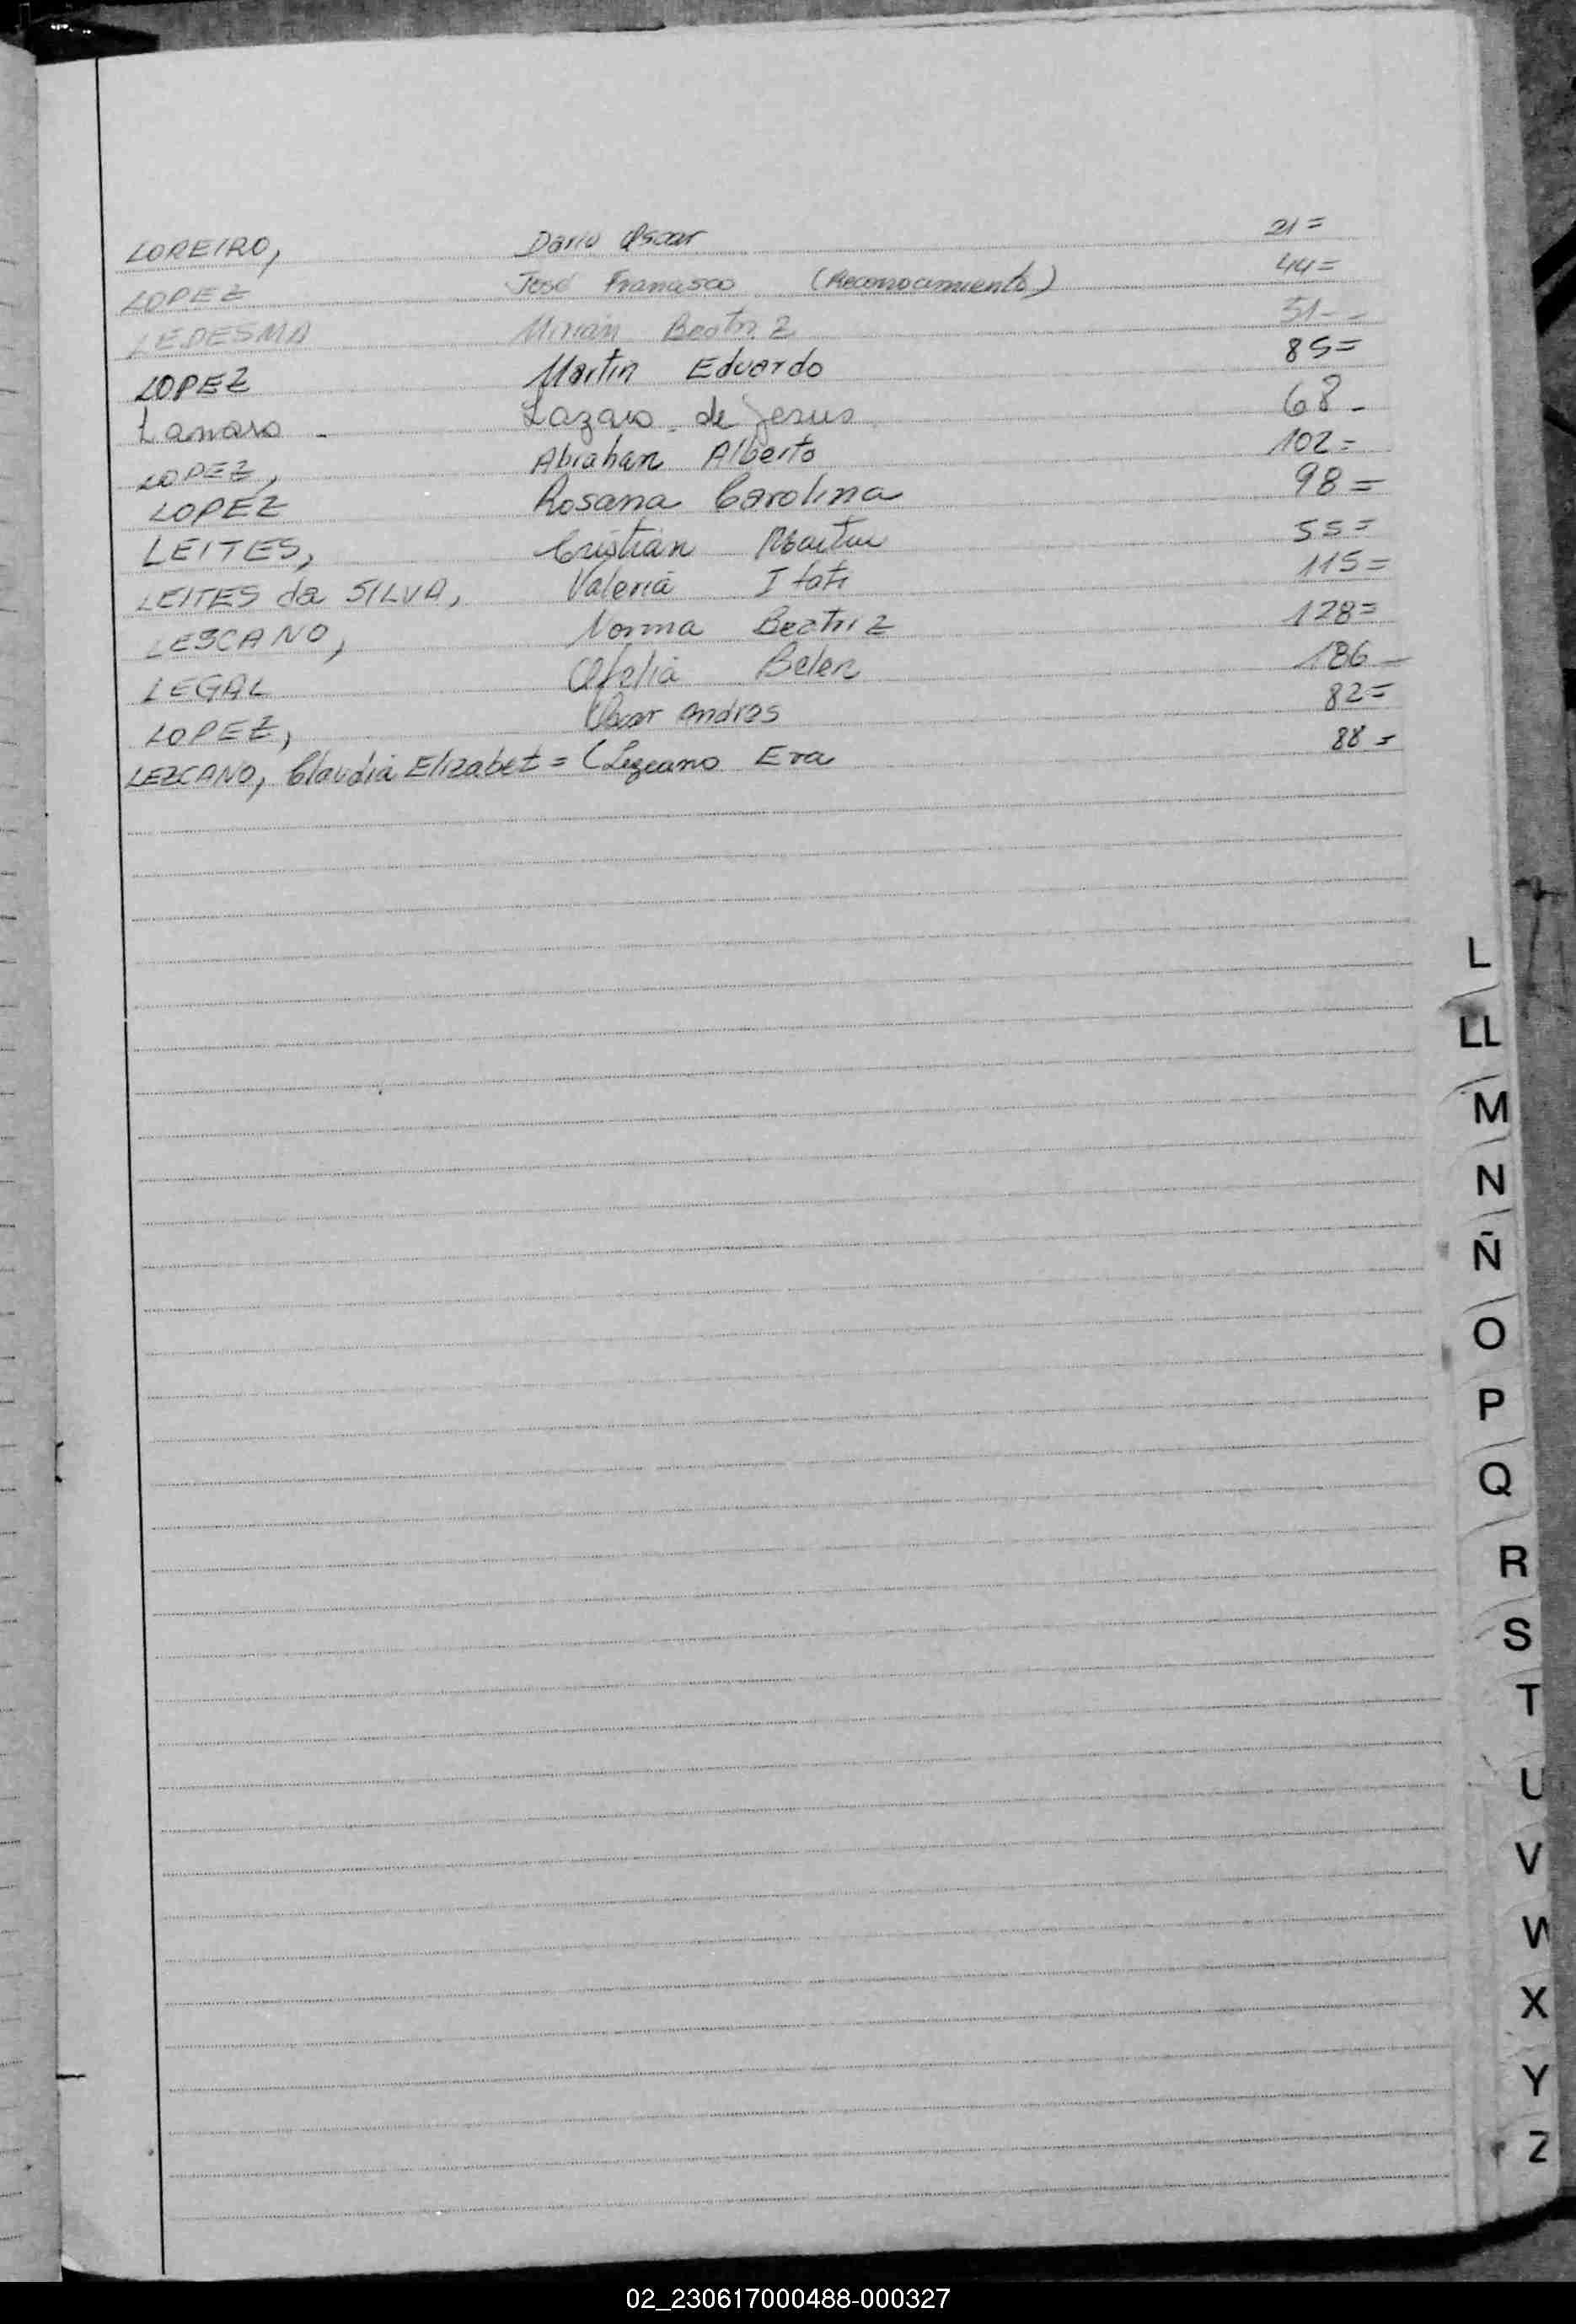 LOREIRO, Dario Oscar 21=
LOPEZ José Francisco (Reconocimiento) 44=
LEDESMA Mirian Beatriz 51--
LOPEZ Martin Eduardo 85=
Lazaro de Jesus 68-
LOPEZ, Abrahan Alberto 102=
LOPEZ Rosana Carolina 98=
LEITES, Cristian Martin 55=
LEITES da SILVA, Valeria Itati 115=
LESCANO, Norma Beatriz 128=
LEGAL Ofelia Belen 186-
LOPEZ, Oscar Andres 82=
LEZCANO, Claudia Elizabet = (Lezcano Eva 88=
L
LL
M
N
Ñ
O
P
Q
R
S
T
U
V
W
X
Y
Z
02_230617000488-000327